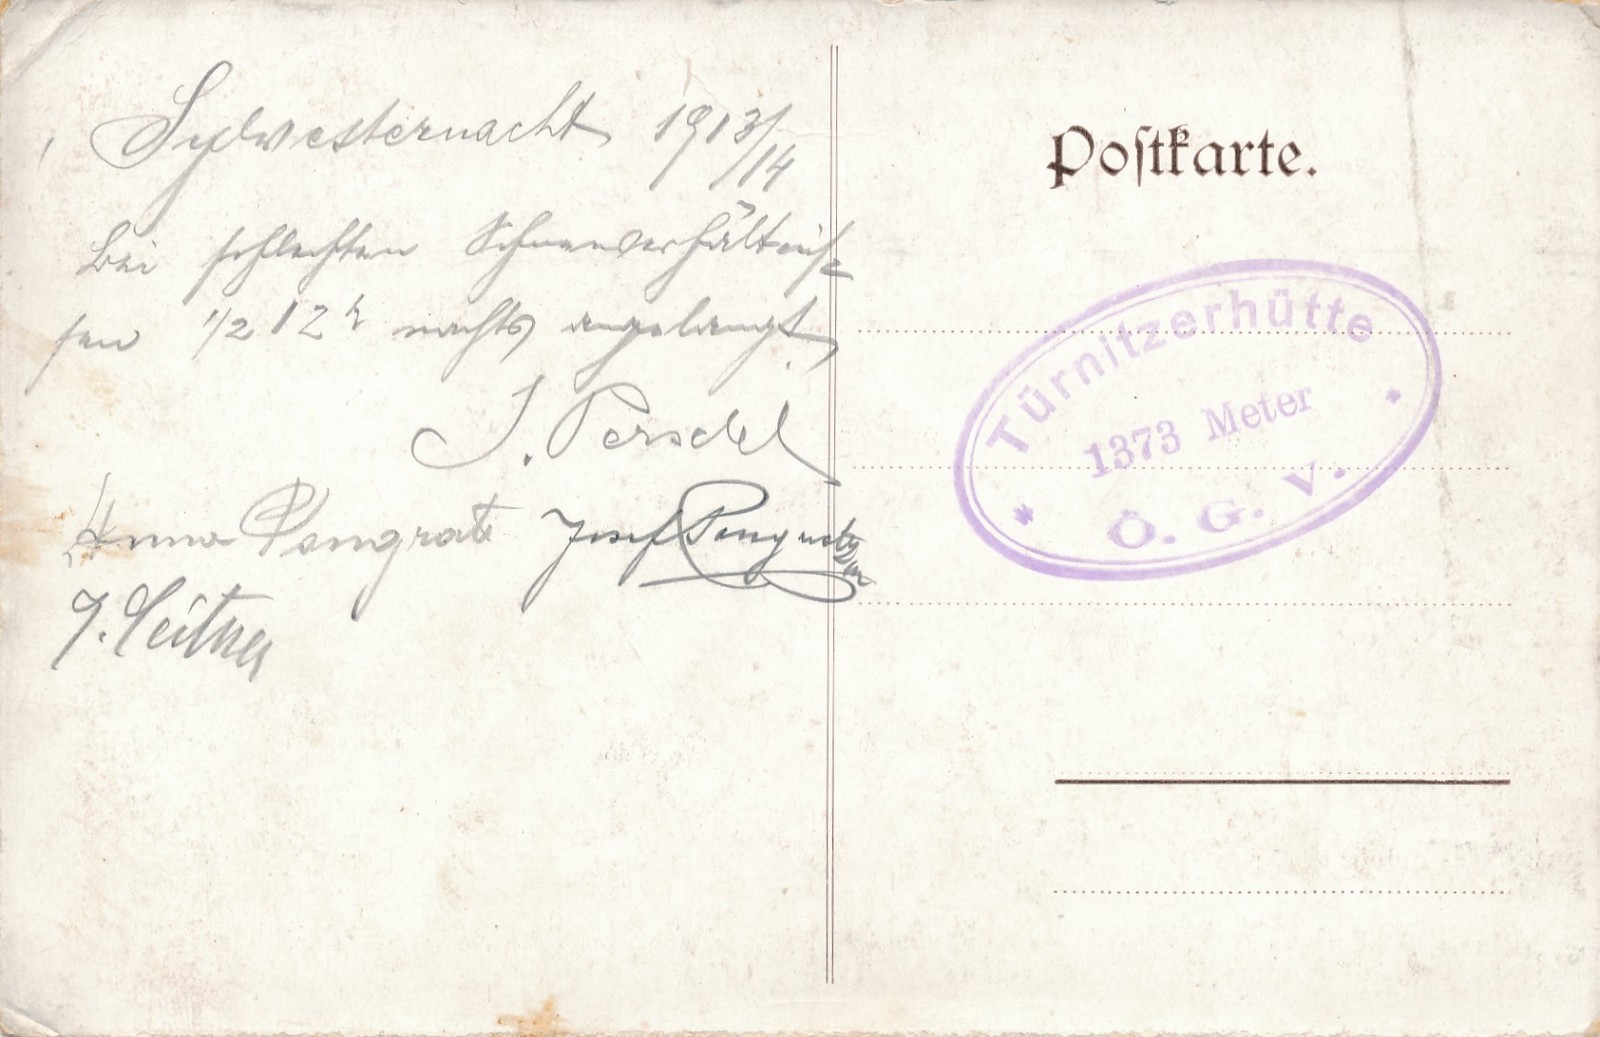 Sylvesternacht 1913/14
bei schlechten Schneeverhältnis-
sen 1/2 12 h nachts angelangt
J. Perschl
Anna Pongratz Josef Pongratz
J. Leitner
Postkarte.
Türnitzerhütte
1373 Meter
Ö. G. V.